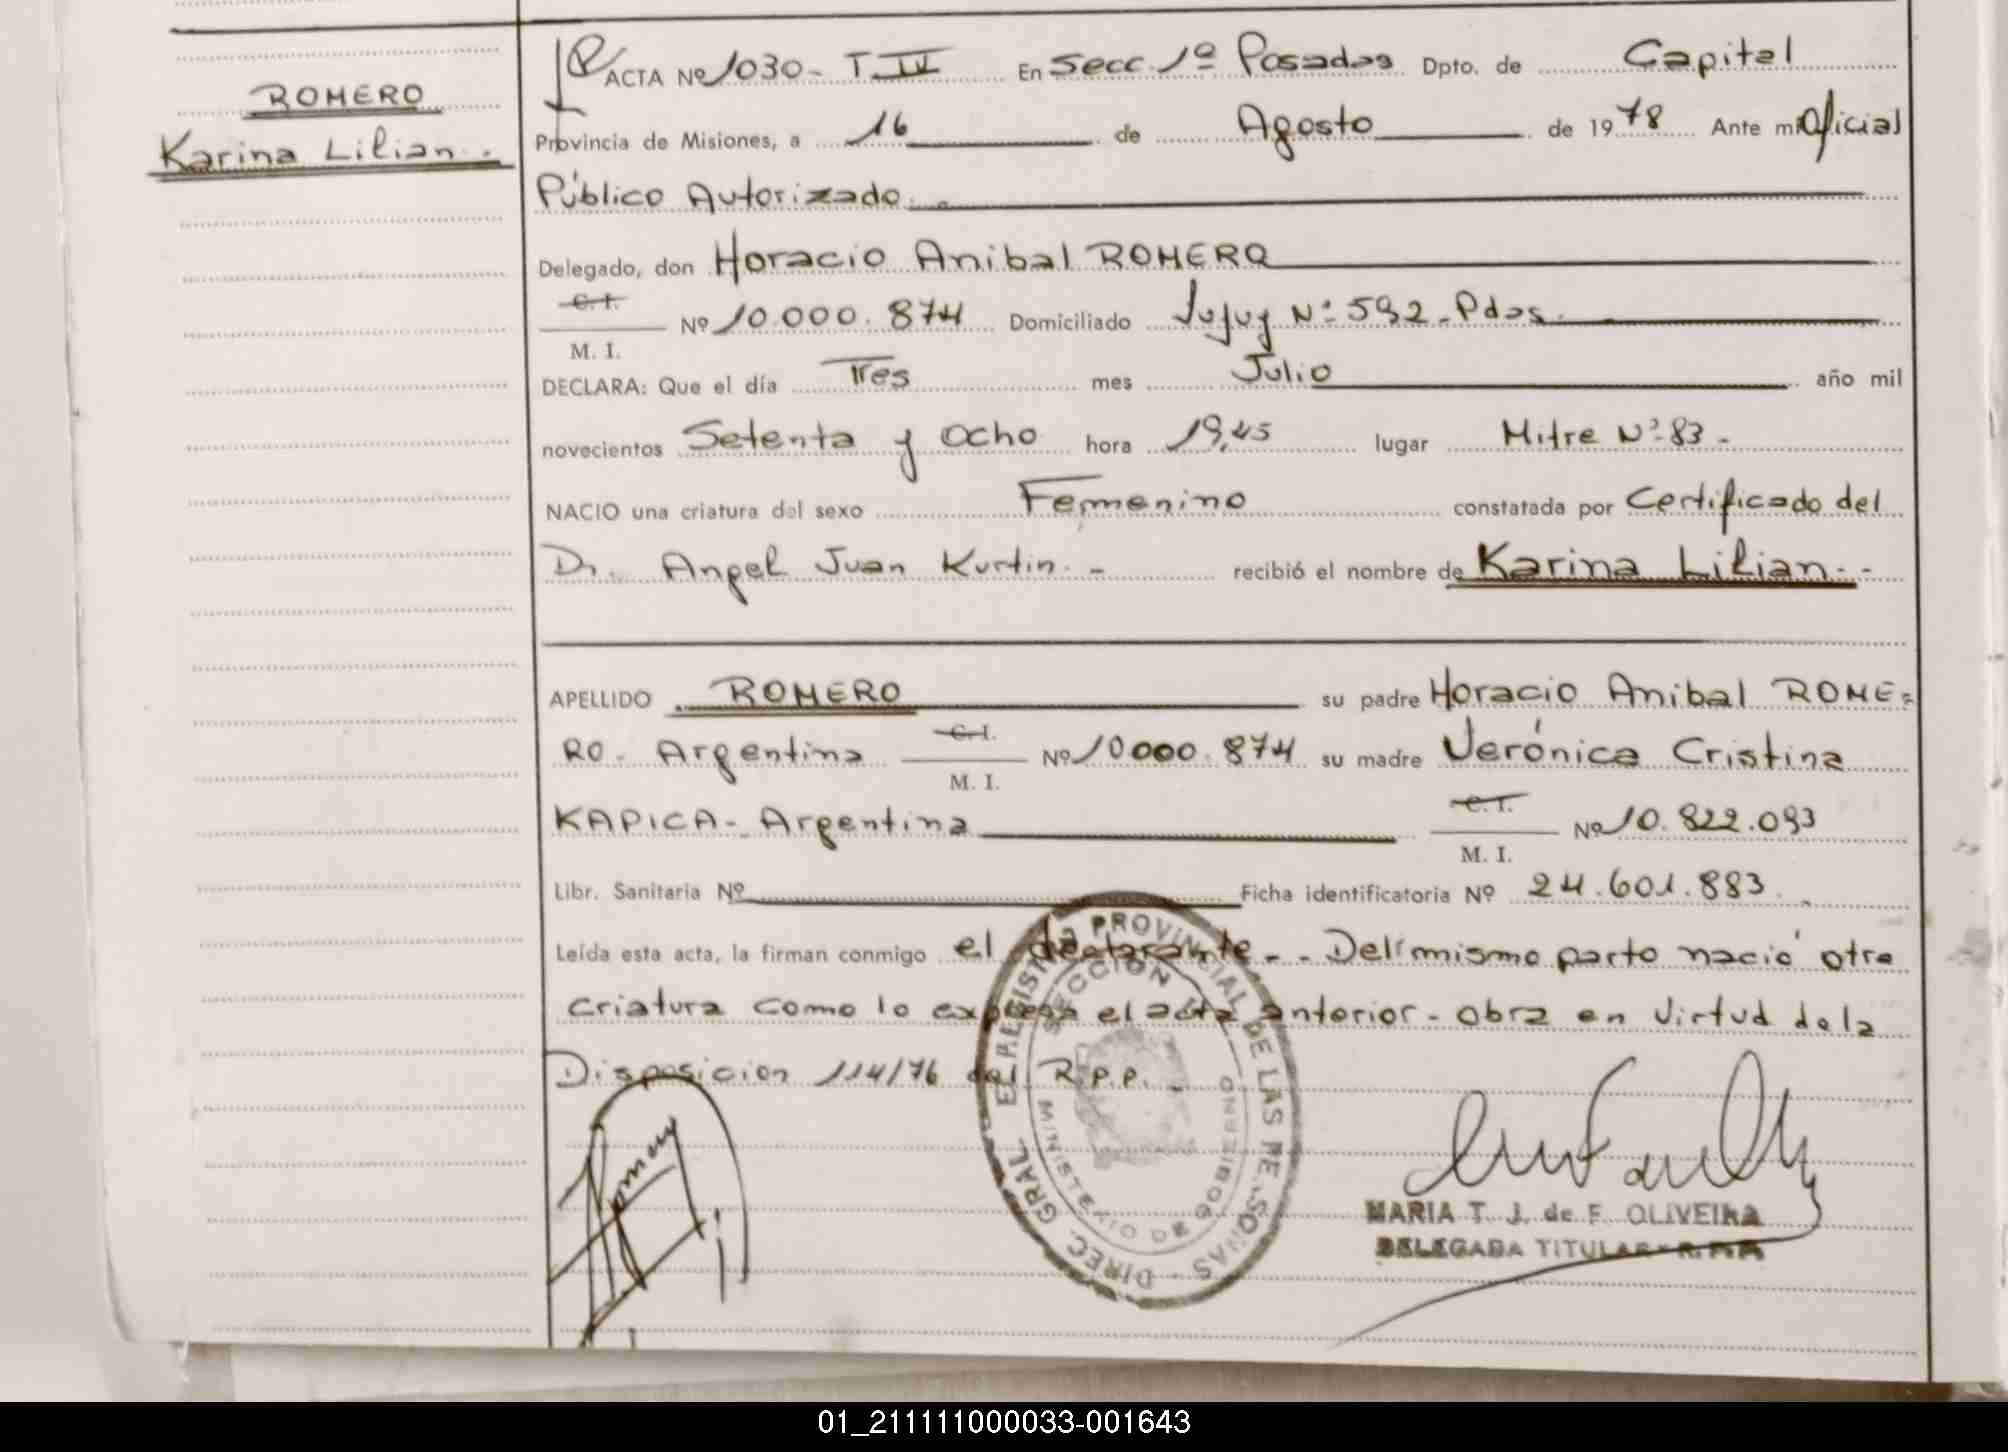 ROMERO
Karina Lilian.-
ACTA Nº 1030- T II En Secc. 1º Posadas Dpto. de Capital
Provincia de Misiones, a 16 de Agosto de 1978 Ante mi Oficial
Público Autorizado.-
Delegado, don Horacio Anibal ROMERO
C. I.
Nº 10.000.874 Domiciliado Jujuy Nº 592-Pdas.
M. I.
DECLARA: Que el día Tres mes Julio año mil
novecientos Setenta y Ocho hora 19,45 lugar Mitre Nº 83-
NACIO una criatura del sexo Femenino constatada por Certificado del
Dr. Angel Juan Kurtin.- recibió el nombre de Karina Lilian.-
APELLIDO ROMERO su padre Horacio Anibal ROME=
RO- Argentina C. I. Nº 10000.874 su madre Verónica Cristina
M. I.
KAPICA- Argentina C. I. Nº 10.822.093
M. I.
Libr. Sanitaria Nº Ficha identificatoria Nº 24.601.883.
Leída esta acta, la firman conmigo el declarante.- Del mismo parto nació otra
criatura como lo expresa el acta anterior- obra en virtud de la
Disposicion 114/76 del R.p.p.-
DIREC. GRAL. EL REGISTRO PROVINCIAL DE LAS PERSONAS
SECCION 1a
MINISTERIO DE GOBIERNO
MARIA T. J. de F. OLIVEIRA
DELEGADA TITULAR - R.P.P.
01_211111000033-001643